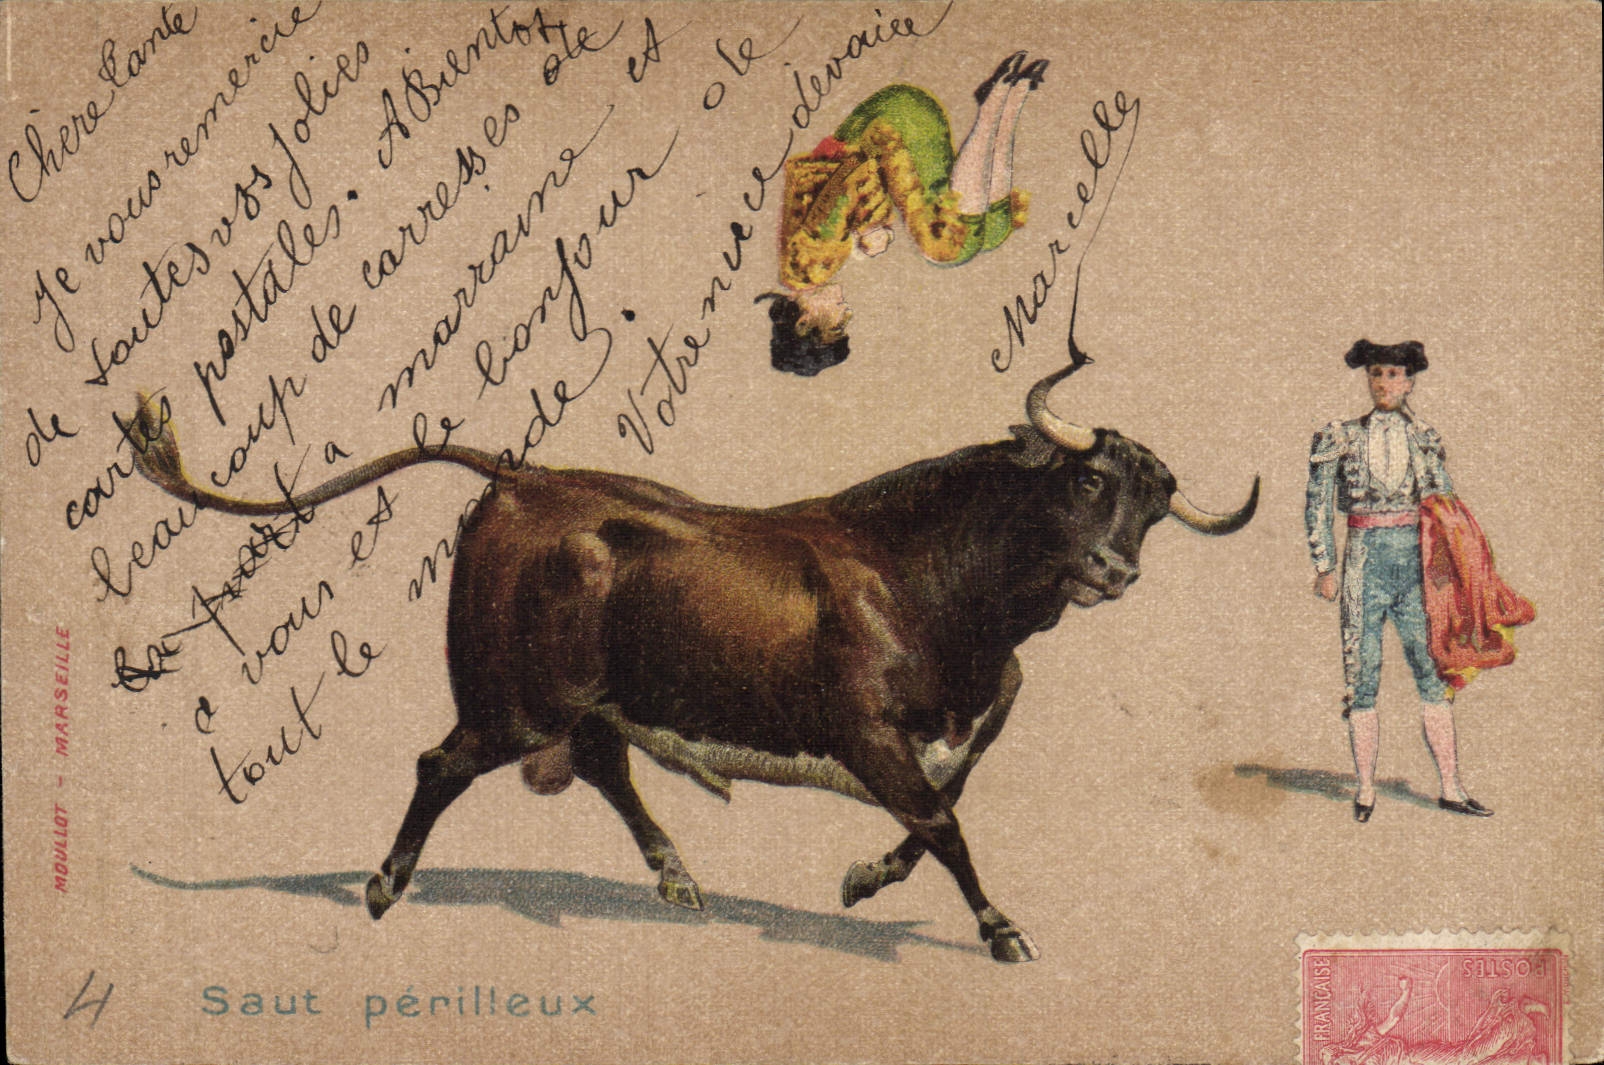 Chère Tante
Je vous remercie
de toutes vos jolies
cartes postales. A Bientot
beaucoup de carresses de
ma part a marraine et
a vous et le bonjour de
tout le monde.
Votre niece dévouée
Marcelle
MOULLOT - MARSEILLE
4
Saut périlleux
FRANÇAISE
POSTES